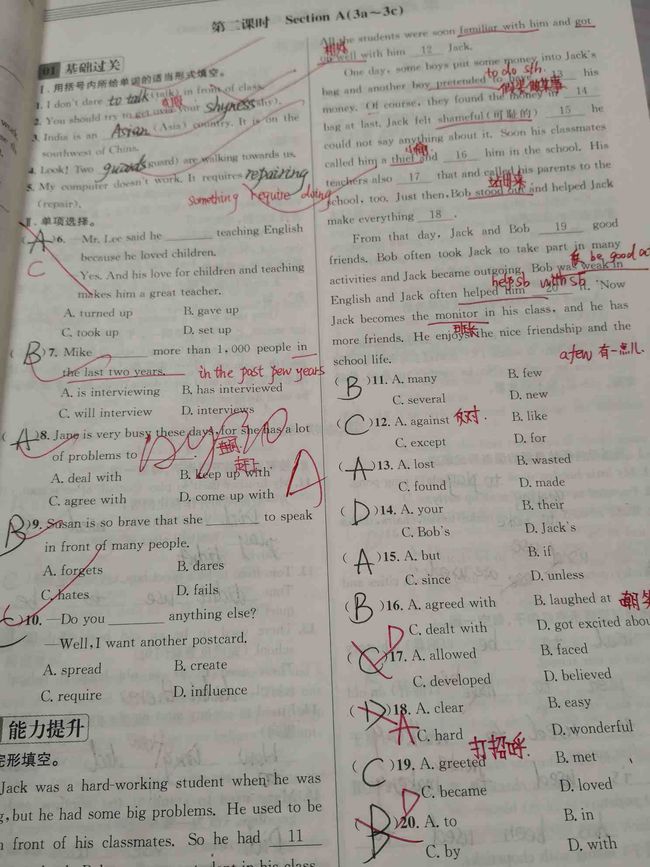 第二课时 Section A(3a～3c)
01 基础过关
Ⅰ. 用括号内所给单词的适当形式填空。
1. I don't dare to talk (talk) in front of class.
2. You should try to get over your shyness (shy).
3. India is an Asian (Asia) country. It is on the
southwest of China.
4. Look! Two guards (guard) are walking towards us.
5. My computer doesn't work. It requires repairing
(repair).
something require doing
Ⅱ. 单项选择。
( A )6. —Mr. Lee said he ______ teaching English
C
because he loved children.
Yes. And his love for children and teaching
makes him a great teacher.
A. turned up B. gave up
C. took up D. set up
( B )7. Mike ______ more than 1,000 people in
the last two years. in the past pew years
A. is interviewing B. has interviewed
C. will interview D. interviews
( A )8. Jane is very busy these days, for she has a lot
of problems to
A. deal with B. keep up with 赶上
C. agree with D. come up with A
( B )9. Susan is so brave that she ______ to speak
in front of many people.
A. forgets B. dares
C. hates D. fails
( C )10. —Do you ______ anything else?
—Well, I want another postcard.
A. spread B. create
C. require D. influence
能力提升
完形填空。
Jack was a hard-working student when he was
g, but he had some big problems. He used to be
n front of his classmates. So he had 11
All the students were soon familiar with him and got
on well with him 12 Jack.
One day, some boys put some money into Jack's
to do sth.
bag and another boy pretended to have 13 his
money. Of course, they found the money in 14
bag at last. Jack felt shameful (可耻的) 15 he
could not say anything about it. Soon his classmates
小偷
called him a thief and 16 him in the school. His
teachers also 17 that and called his parents to the
站出来
school, too. Just then, Bob stood out and helped Jack
make everything 18 .
From that day, Jack and Bob 19 good
friends. Bob often took Jack to take part in many
activities and Jack became outgoing. Bob was weak in
help sb with sb.
English and Jack often helped him 20 it. Now
Jack becomes the monitor in his class, and he has
班长
more friends. He enjoys the nice friendship and the
school life.
a few 有一点儿
( B )11. A. many B. few
C. several D. new
( C )12. A. against 反对 B. like
C. except D. for
( A )13. A. lost B. wasted
C. found D. made
( D )14. A. your B. their
C. Bob's D. Jack's
( A )15. A. but B. if
C. since D. unless
( B )16. A. agreed with B. laughed at 嘲笑
C. dealt with D. got excited abou
( C )17. A. allowed B. faced
D
C. developed D. believed
( D )18. A. clear B. easy
A C. hard D. wonderful
打招呼
( C )19. A. greeted B. met
C. became D. loved
D
( B )20. A. to B. in
C. by D. with